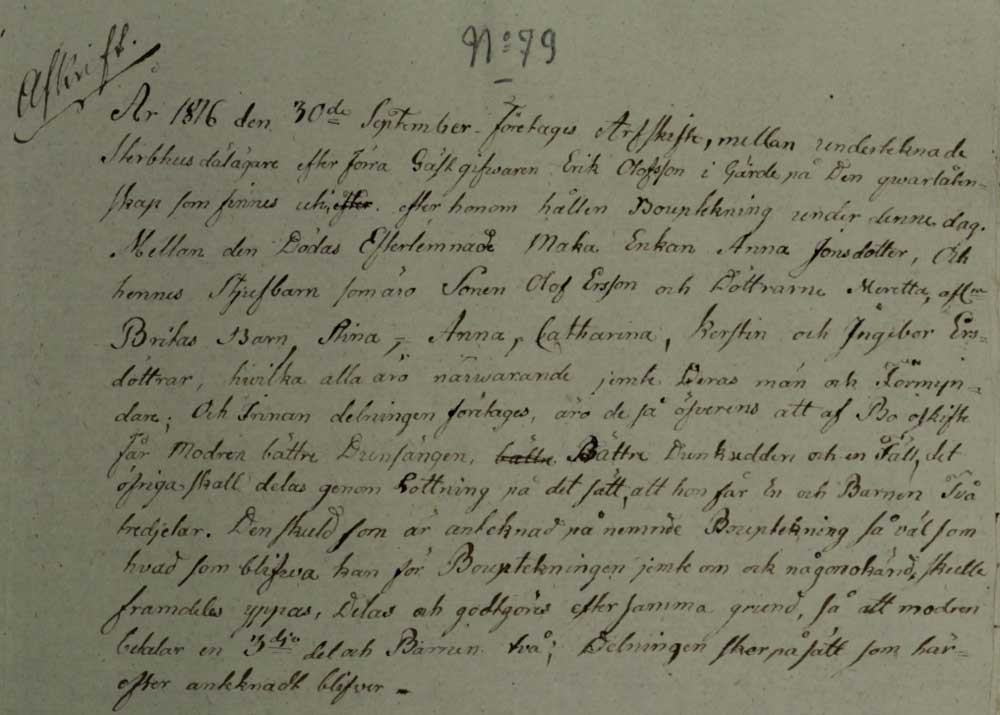 No 79
Afskrift.
År 1816 den 30de September företages Arfskifte, mellan underteknade
Sterbhusdelägare efter förra Gästgifwaren Erik Olofsson i Gärde på Den qwarlåten-
skap som finnes uti efter honom hållen Bouptekning under denne dag.
Mellan den Dödas Efterlemnade Maka Enkan Anna Jonsdotter, Och
hennes Stjufbarn som äro Sonen Olof Ersson och Döttrarne Meretta, afl:ne
Britas Barn, Stina, Anna, Catharina, Kerstin och Ingebor Ers-
döttrar, hwilka alla äro närwarande jemte Deras män och Förmyn-
dare; Och Innan delningen företages, äro de så öfverens att af Bo oskifte
får Modren bättre Dunsängen, bättre Bättre Dunkudden och en Fäll, det
öfriga skall delas genom Lottning på det sätt, att hon får En och Barnen Två
tredjelar. Den skuld som är anteknad på nemnde Bouptekning så väl som
hvad som blifwa kan för Bouptekningen jemte om och någon okänd, skulle
framdeles yppas, Delas och godtgöres efter samma grund, så att modren
betalar en 3dje del och Barnen två; Delningen sker på sätt som här-
efter anteknadt blifver –